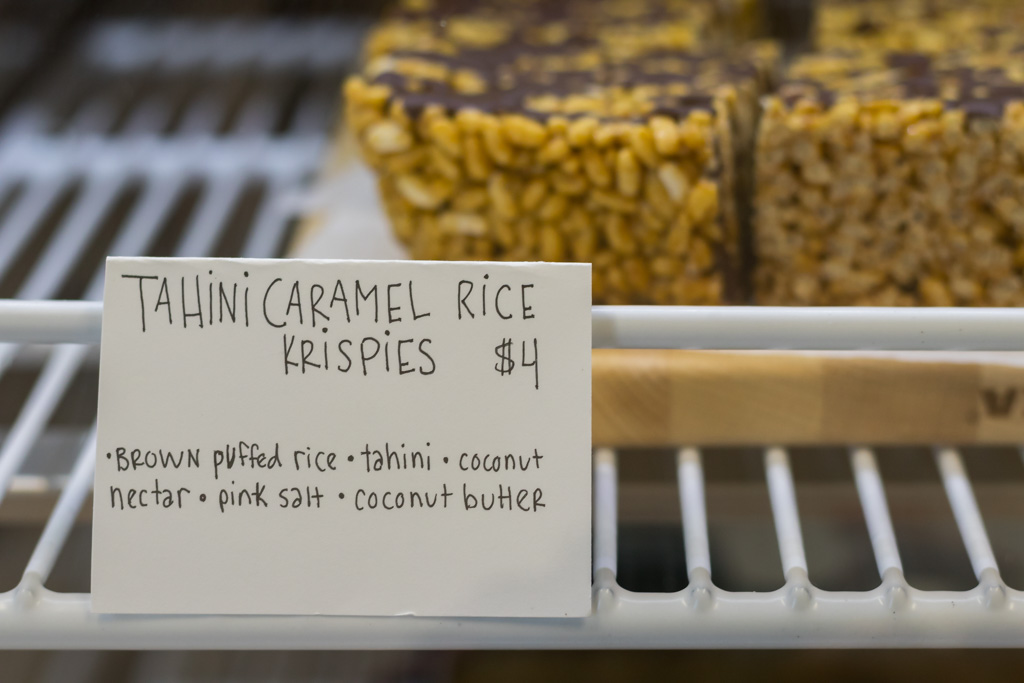 TAHINI CARAMEL RICE
KRISPIES $4
•BROWN puffed rice • tahini • coconut
nectar • pink salt • coconut butter